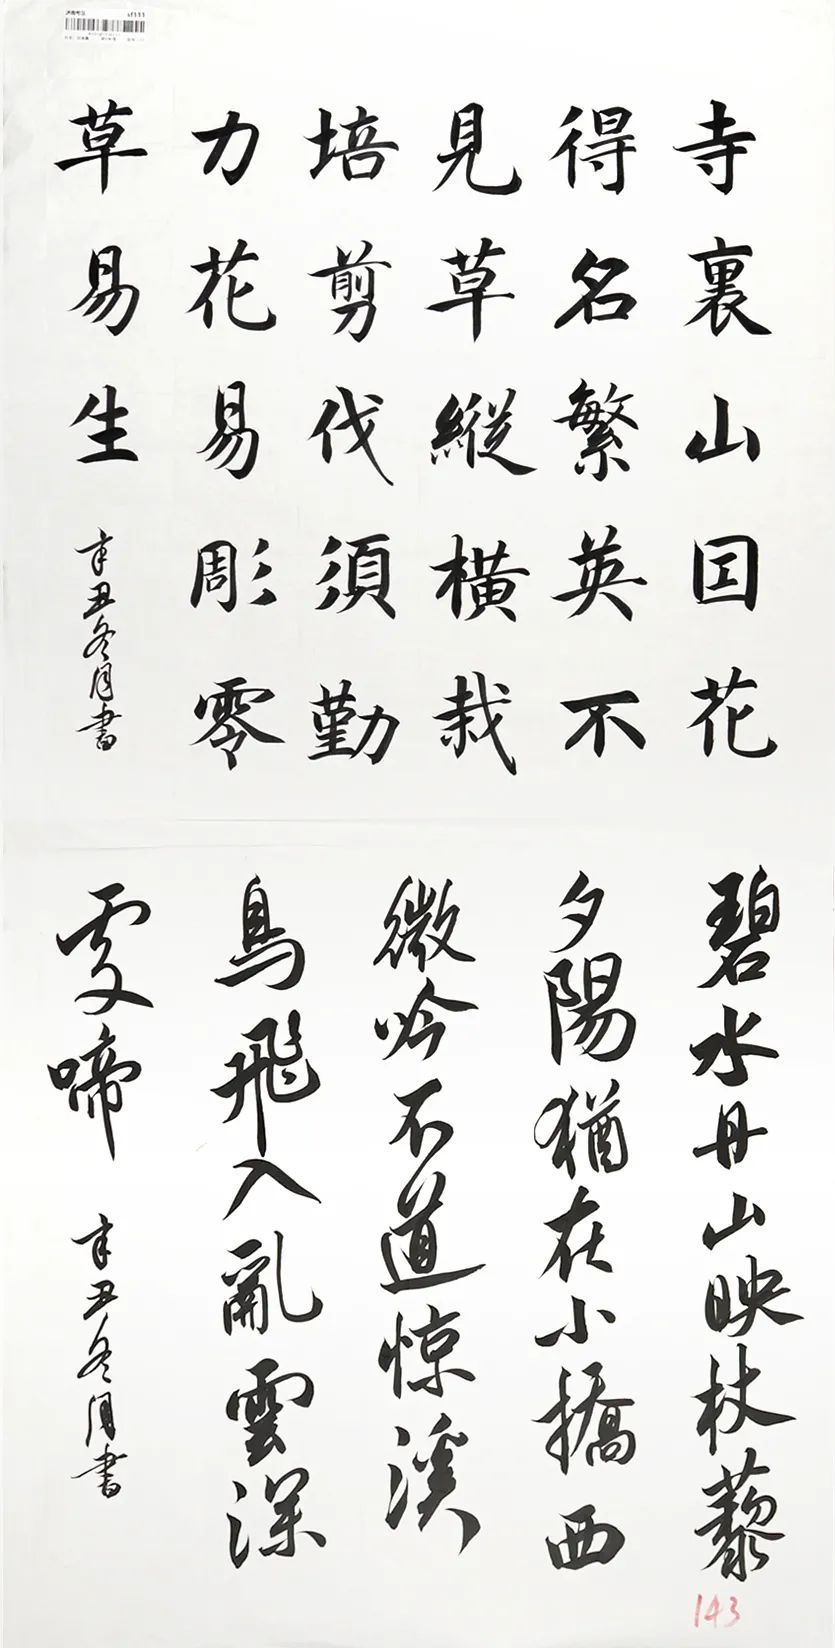 寺裏山因花
得名繁英不
見草縱橫栽
培剪伐須勤
力花易彫零
草易生
辛丑冬月書
碧水丹山映杖藜
夕陽猶在小橋西
微吟不道惊溪
鳥飛入亂雲深
處啼
辛丑冬月書
143